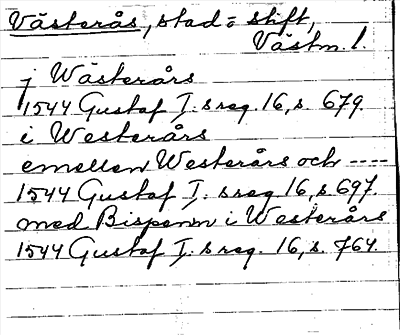 Västerås, stad = stift,
Västm. l.
j Wästerårs
1544 Gustaf I:s reg. 16, s. 679.
i Westerårs
emellen Westerårs och ----
1544 Gustaf I:s reg. 16, s 697.
med Bispenn i Westerårs
1544 Gustaf I:s reg. 16, s. 764.